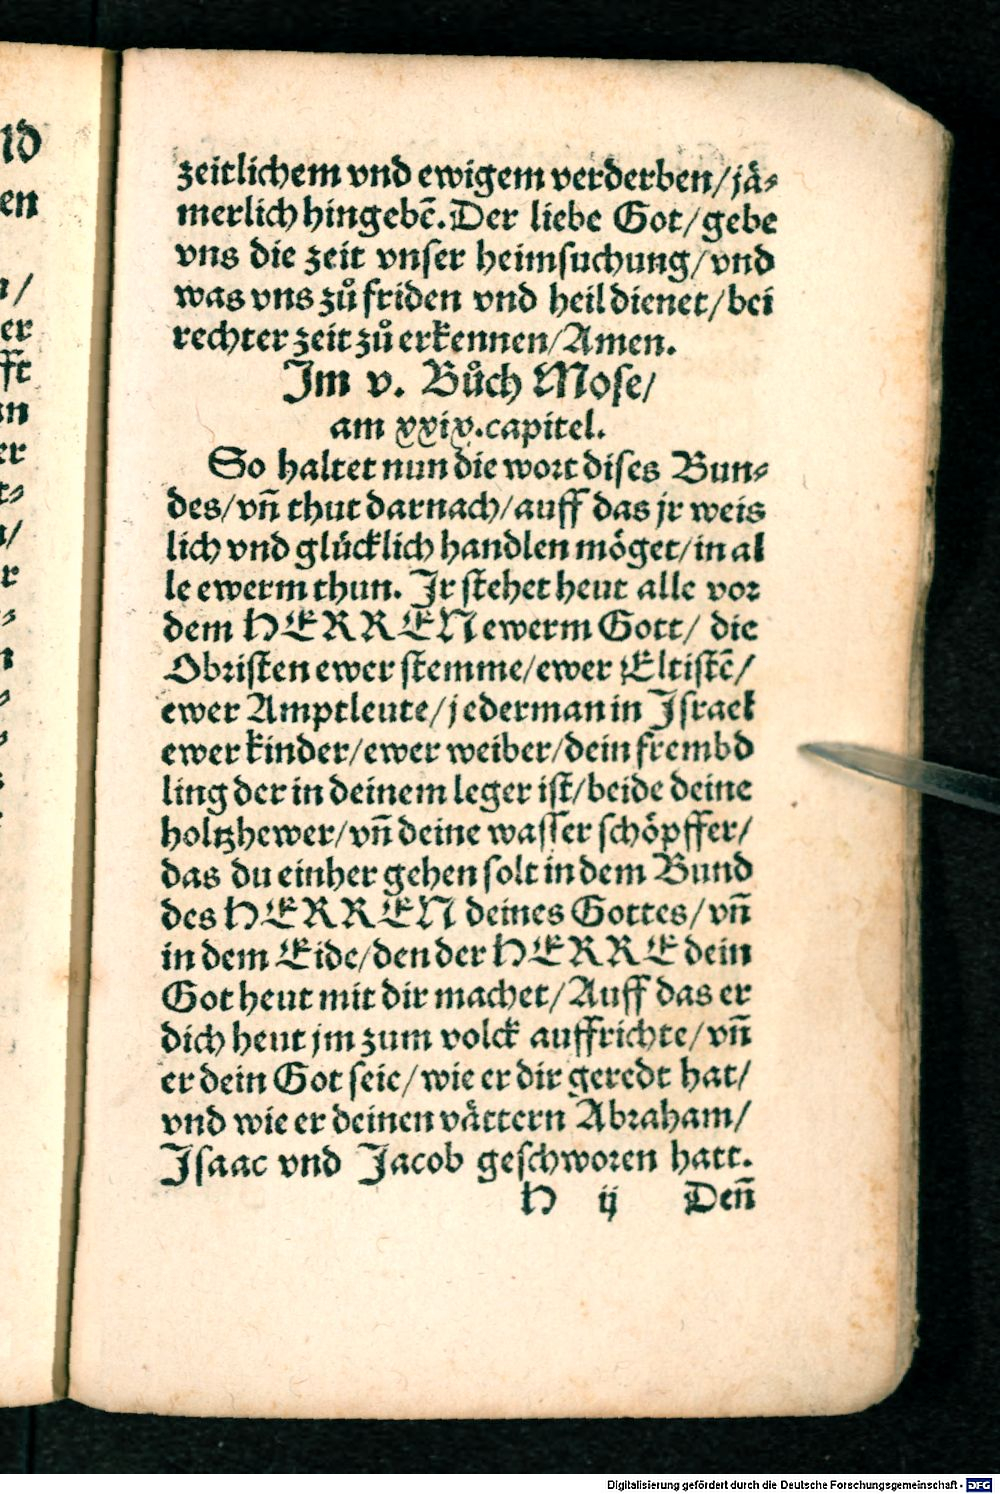 zeitlichem vnd ewigem verderben/jä⸗
merlich hingebē. Der liebe Got/gebe
vns die zeit vnser heimsuchung/vnd
was vns zů friden vnd heil dienet/bei
rechter zeit zů erkennen/Amen.
Im v. Bůch Mose/
am xxix.capitel.
So haltet nun die wort dises Bun⸗
des/vn̄ thut darnach/auff das jr weis
lich vnd glücklich handlen möget/in al
le ewerm thun. Ir stehet heut alle vor
dem HERREN ewerm Gott/ die
Obristen ewer stemme/ewer Eltistē/
ewer Amptleute/jederman in Israel
ewer kinder/ewer weiber/dein frembd
ling der in deinem leger ist/beide deine
holtzhewer/vn̄ deine wasser schöpffer/
das du einher gehen solt in dem Bund
des HERREN deines Gottes/vn̄
in dem Eide/den der HERRE dein
Got heut mit dir machet/Auff das er
dich heut jm zum volck auffrichte/vn̄
er dein Got seie/wie er dir geredt hat/
vnd wie er deinen vättern Abraham/
Isaac vnd Jacob geschworen hatt.
H ij Den̄
Digitalisierung gefördert durch die Deutsche Forschungsgemeinschaft - DFG